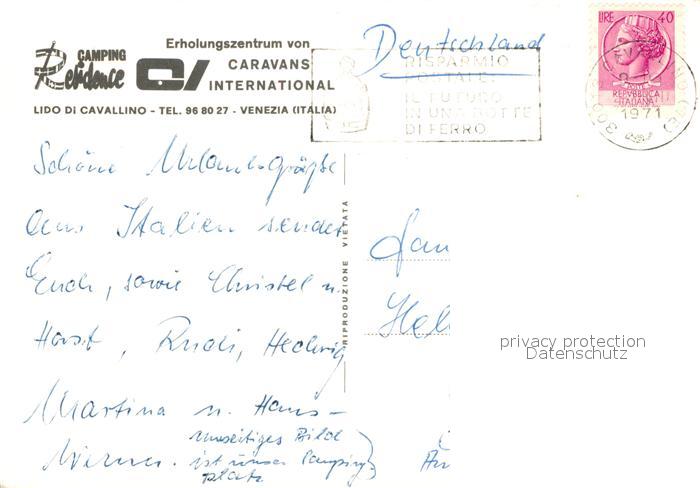 CAMPING
Residence
Erholungszentrum von
CI CARAVANS
INTERNATIONAL
LIDO DI CAVALLINO - TEL. 96 80 27 - VENEZIA (ITALIA)
Deutschland
LIRE 40
POSTE
REPVBBLICA
ITALIANA
RISPARMIO
POSTALE:
IL FUTURO
IN UNA BOTTE
DI FERRO
1971
Schöne Urlaubsgrüße
aus Italien sendet
Euch, sowie Christel u.
Horst, Rudi, Hedwig
Martina u. Hans-
Werner.
umseitiges Bild
ist unser Camping
platz
RIPRODUZIONE VIETATA
Fam
Hel
An
privacy protection
Datenschutz